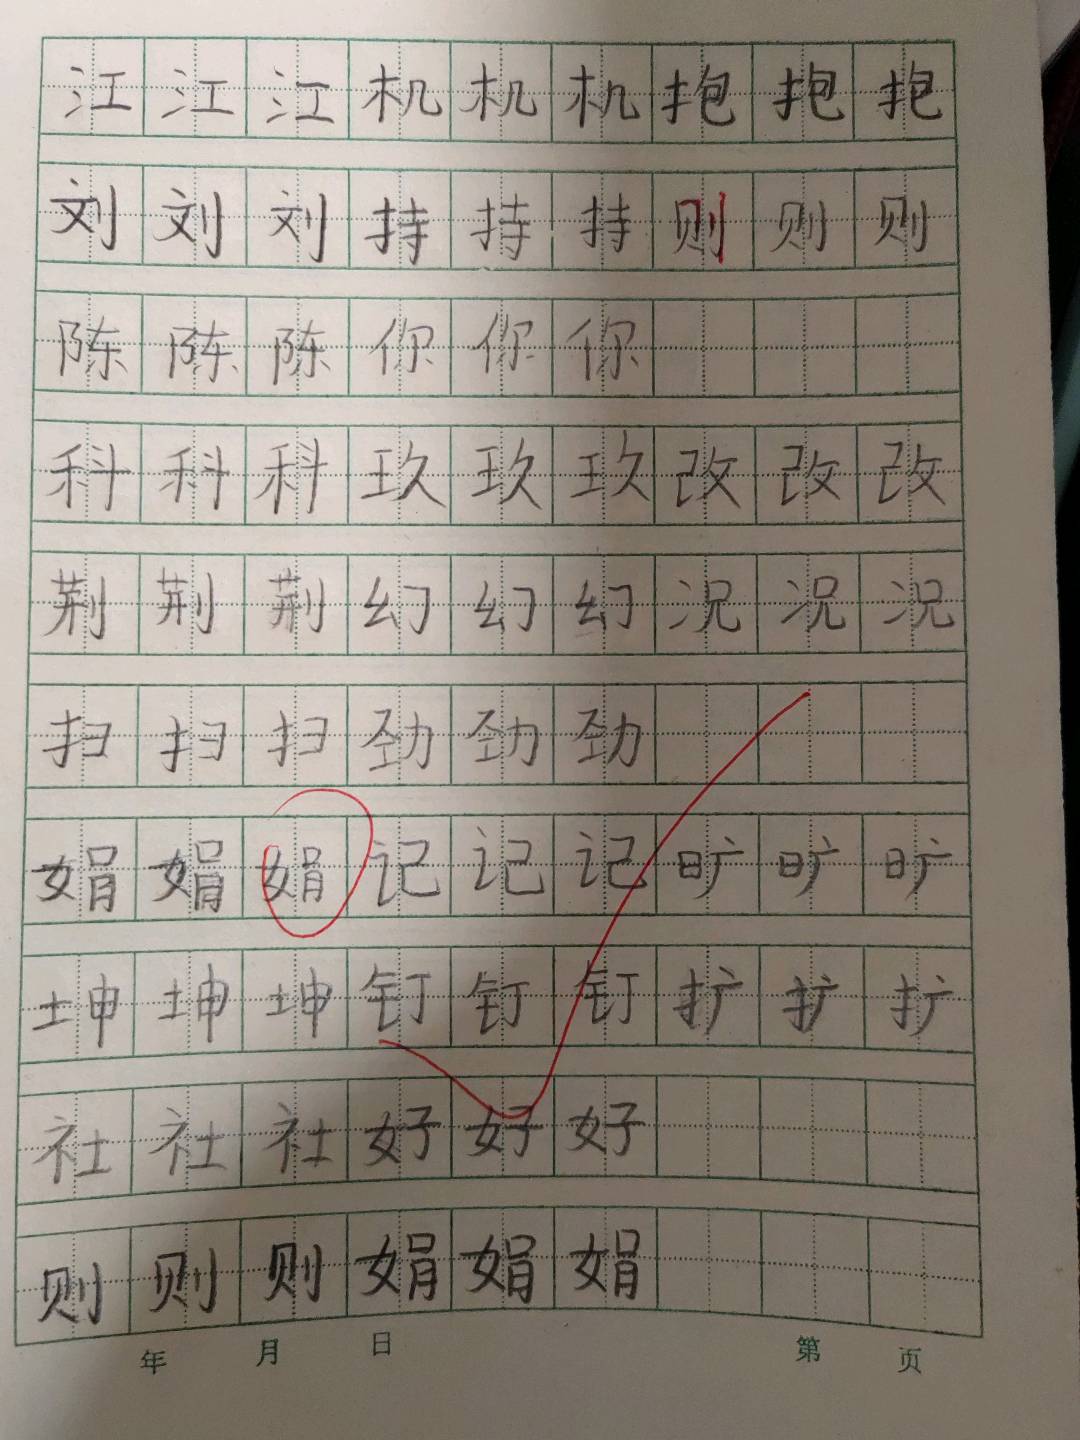 江江江机机机抱抱抱
刘刘刘持持持则则则
陈陈陈你你你
科科科玖玖玖改改改
荆荆荆幻幻幻况况况
扫扫扫劲劲劲
娟娟娟记记记旷旷旷
坤坤坤钉钉钉扩扩扩
社社社好好好
则则则娟娟娟
年 月 日 第 页